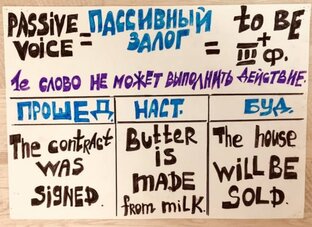 PASSIVE VOICE = ПАССИВНЫЙ ЗАЛОГ = to BE + III Ф.
1е СЛОВО НЕ МОЖЕТ ВЫПОЛНИТЬ ДЕЙСТВИЕ.
ПРОШЕД. НАСТ. БУД.
The contract
WAS
SIGNED.
Butter
iS
MADE
from milk.
The house
WiLL BE
SOLD.